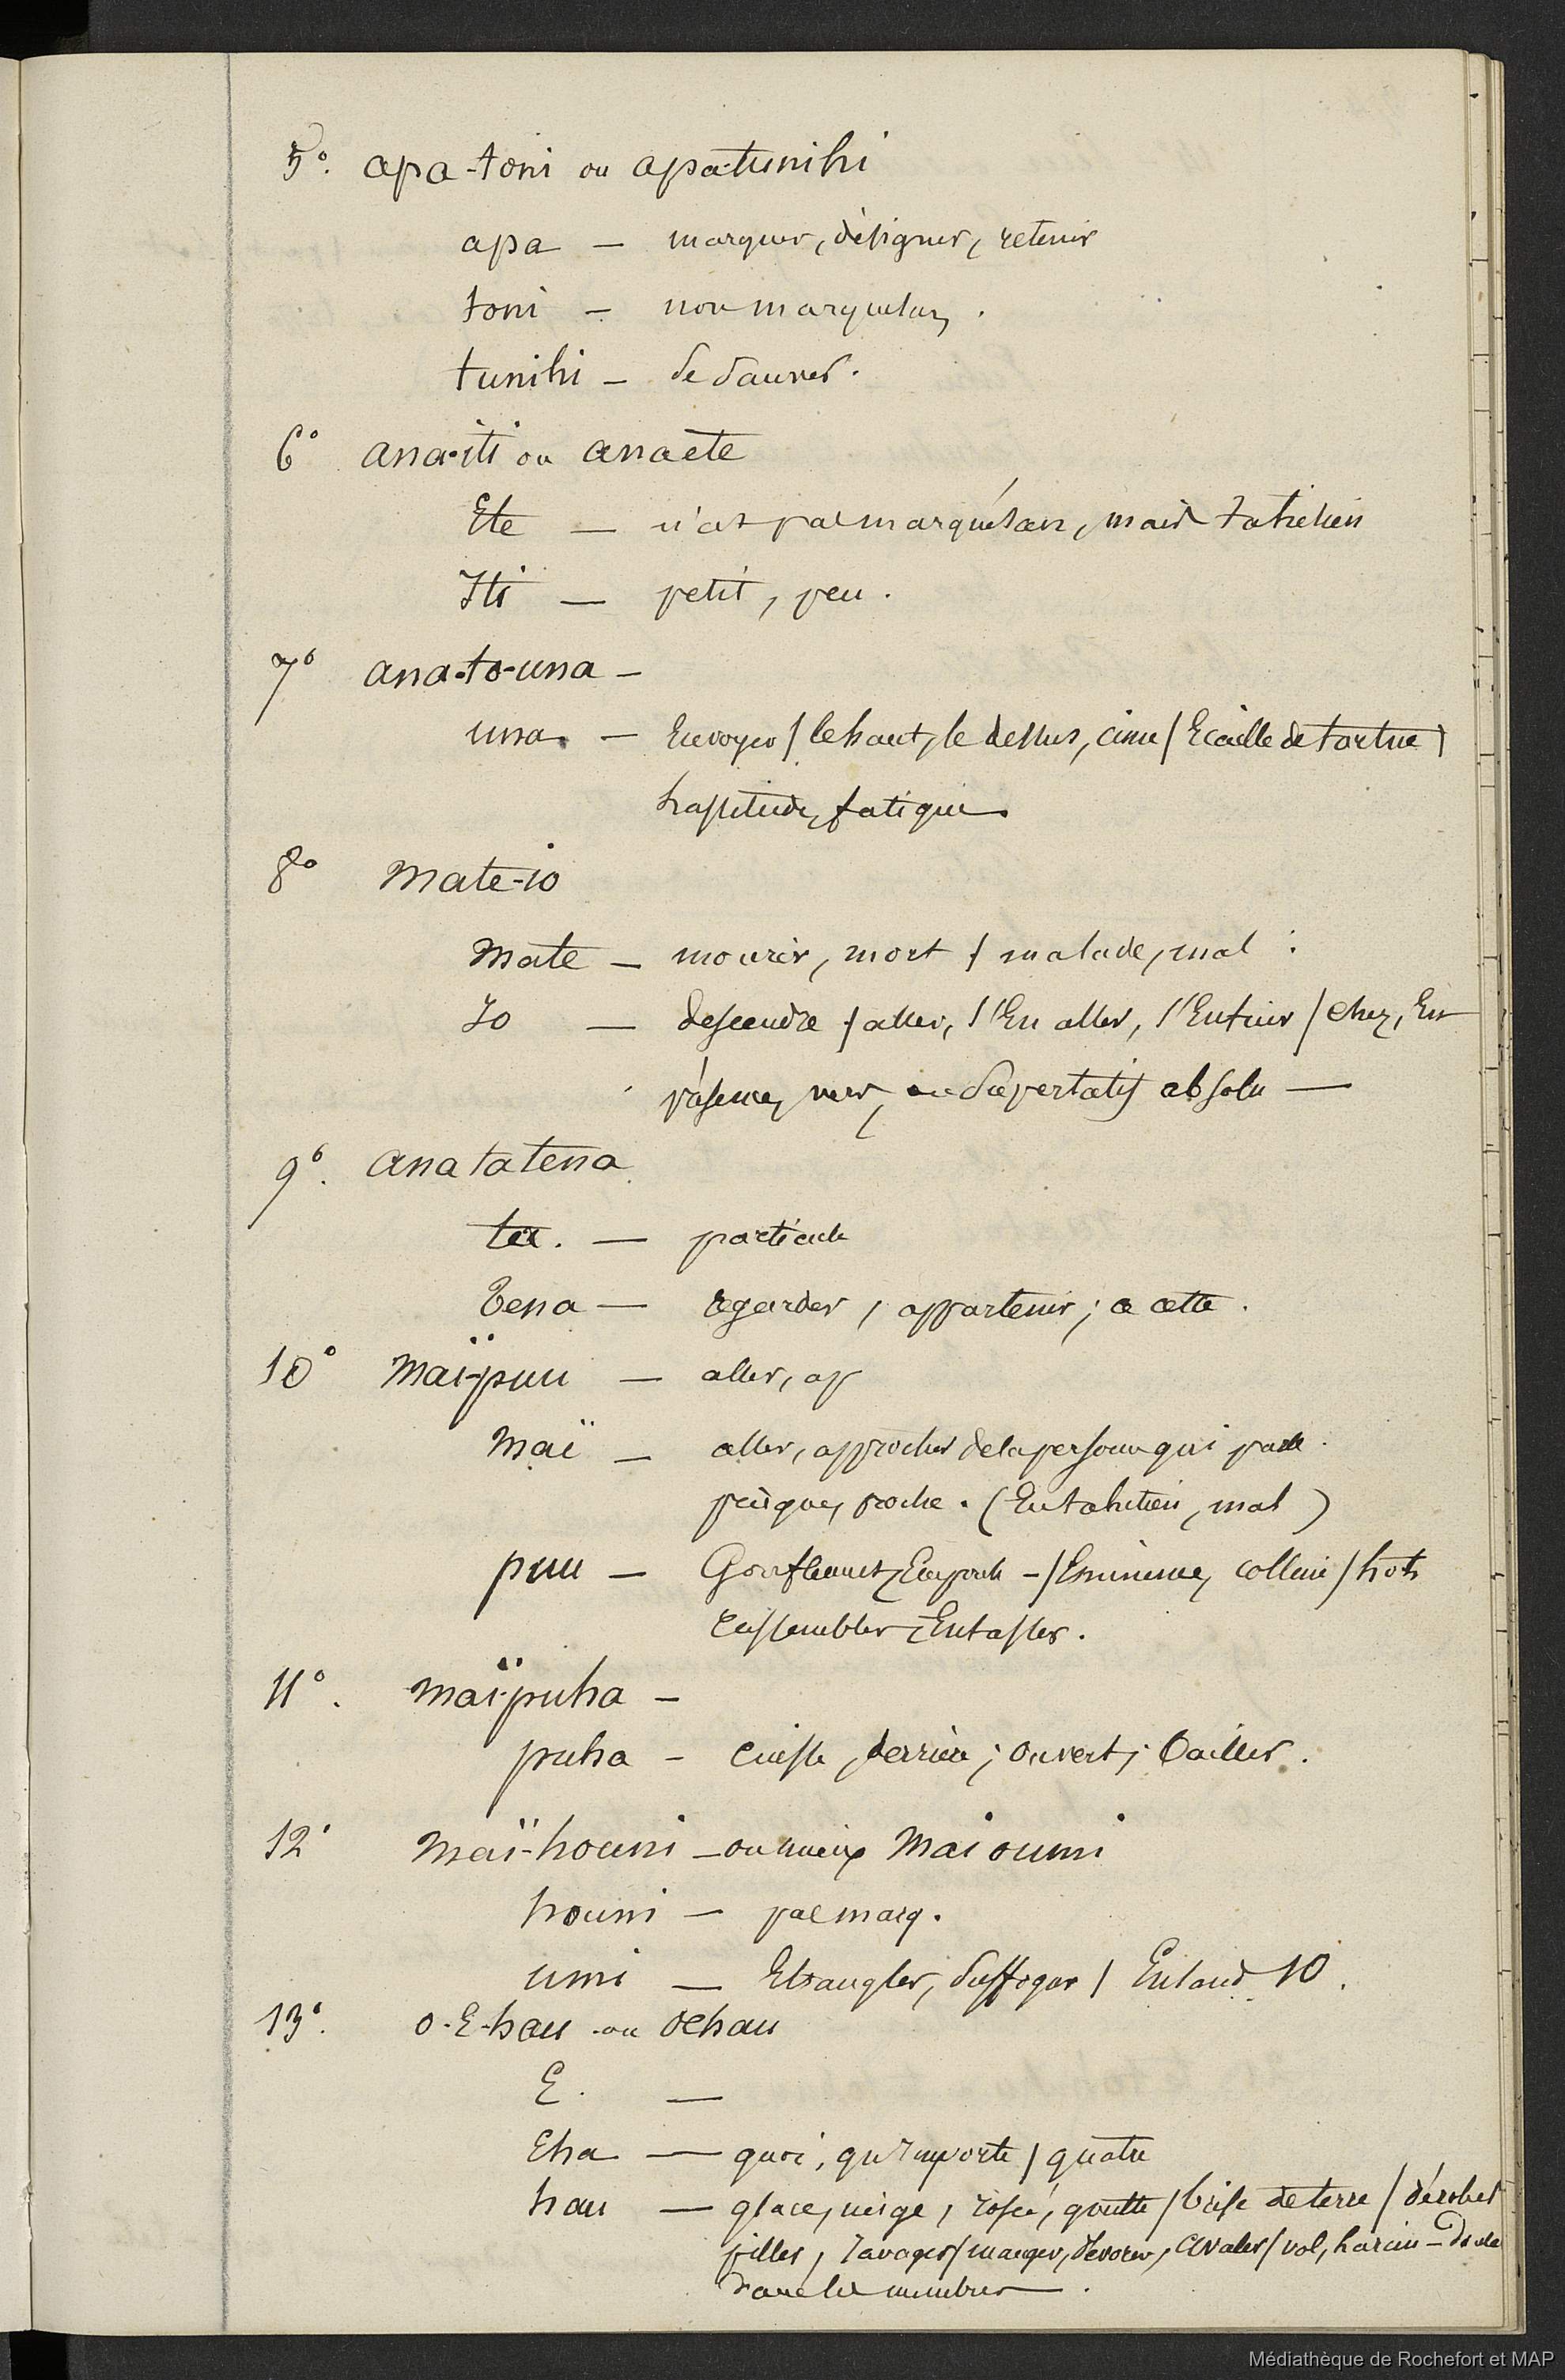 5°. apa-toni ou apatunihi
apa — marquer, désigner, retenir
toni — non marquisan.
tunihi — se sauver.
6° ana-iti ou anaete
Ete — n'est pas marquésan, mais tahitien
Iti — petit, peu.
7° ana-to-una —
una. — Envoyer / le haut, le dessus, cime / Ecaille de tortue /
lassitude, fatigue
8° Mate-io
Mate — mourir, mort / malade, mal :
Io — descendre / aller, s'En aller, s'Enfuir / chez, En
présence, vers, superlatif absolu —
9°. ana tatena
ta. — particule
Tena — regarder, appartenir ; ce cette.
10° Maï-puu — aller, ap
Maï — aller, approcher de la personne qui parle.
presque, proche. (En tahitien, mal)
puu — Gonflement, / Eminence, colline /
rassembler, Entasser.
11°. maï-puha —
puha — cuisse, derrière ; ouvert ; bailler.
12° Maï-houni — ou mieux Mai oumi
houni — pas marq.
umi — Etrangler, suffoquer / 10.
13°. o-E-hau ou oehau
E. —
Eha — quoi, qu'importe / quatre
hau — glace, neige, rosée, goutte / brise de terre / dérober
piller, ravager / manger, dévorer, avaler / vol, larcin —
dans les membres.